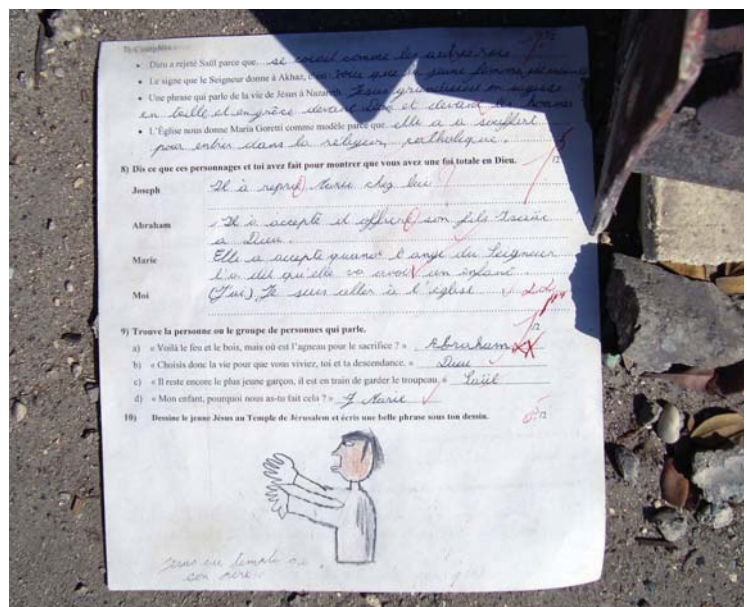 7) Complète :
• Dieu a rejeté Saül parce que
• Le signe que le Seigneur donne à Akhaz, c'est une jeune femme
• Une phrase qui parle de la vie de Jésus à Nazareth. Jésus grandissait en sagesse
en taille et en grâce devant Dieu et devant les hommes
• L'Église nous donne Maria Goretti comme modèle parce que elle a a souffert
pour entrer dans la religion catholique.
8) Dis ce que ces personnages et toi avez fait pour montrer que vous avez une foi totale en Dieu.
Joseph Il à repri Marie chez lui
Abraham Il à accepté d'offrire son fils
a Dieu.
Marie Elle a accepté quand l'ange du Seigneur
l'a dit qu'elle va avoir un enfant.
Moi (J'ai) Je suis aller à l'église
9) Trouve la personne ou le groupe de personnes qui parle.
a) « Voilà le feu et le bois, mais où est l'agneau pour le sacrifice ? » Abraham
b) « Choisis donc la vie pour que vous viviez, toi et ta descendance. » Dieu
c) « Il reste encore le plus jeune garçon, il est en train de garder le troupeau. »
d) « Mon enfant, pourquoi nous as-tu fait cela ? » Marie
10) Dessine le jeune Jésus au Temple de Jérusalem et écris une belle phrase sous ton dessin.
/12
Jésus au temple de
son père